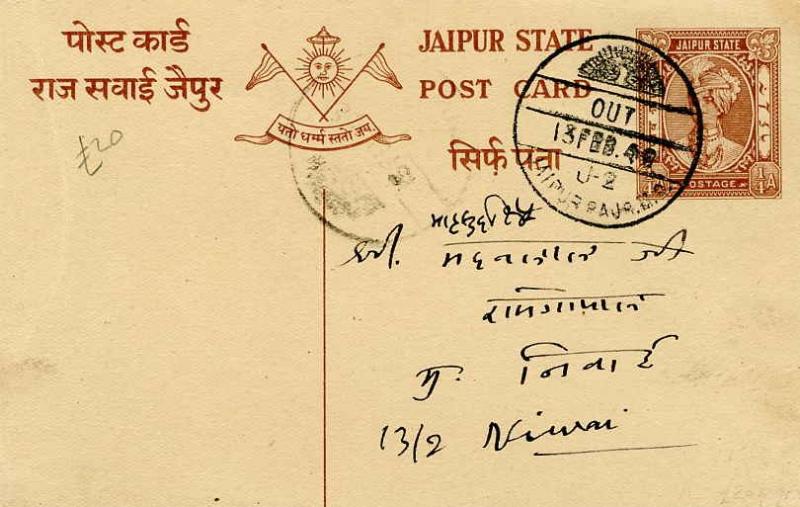 पोस्ट कार्ड
राज सवाई जैपुर
यतो धर्म्म स्ततो जय
JAIPUR STATE
POST CARD
सिर्फ़ पता
JAIPUR STATE
POSTAGE
1/4 A
OUT
13 FEB. 4
J-2
£20
श्री. जी
रामगोपाल
मु. निवाई
13/2 Niwai